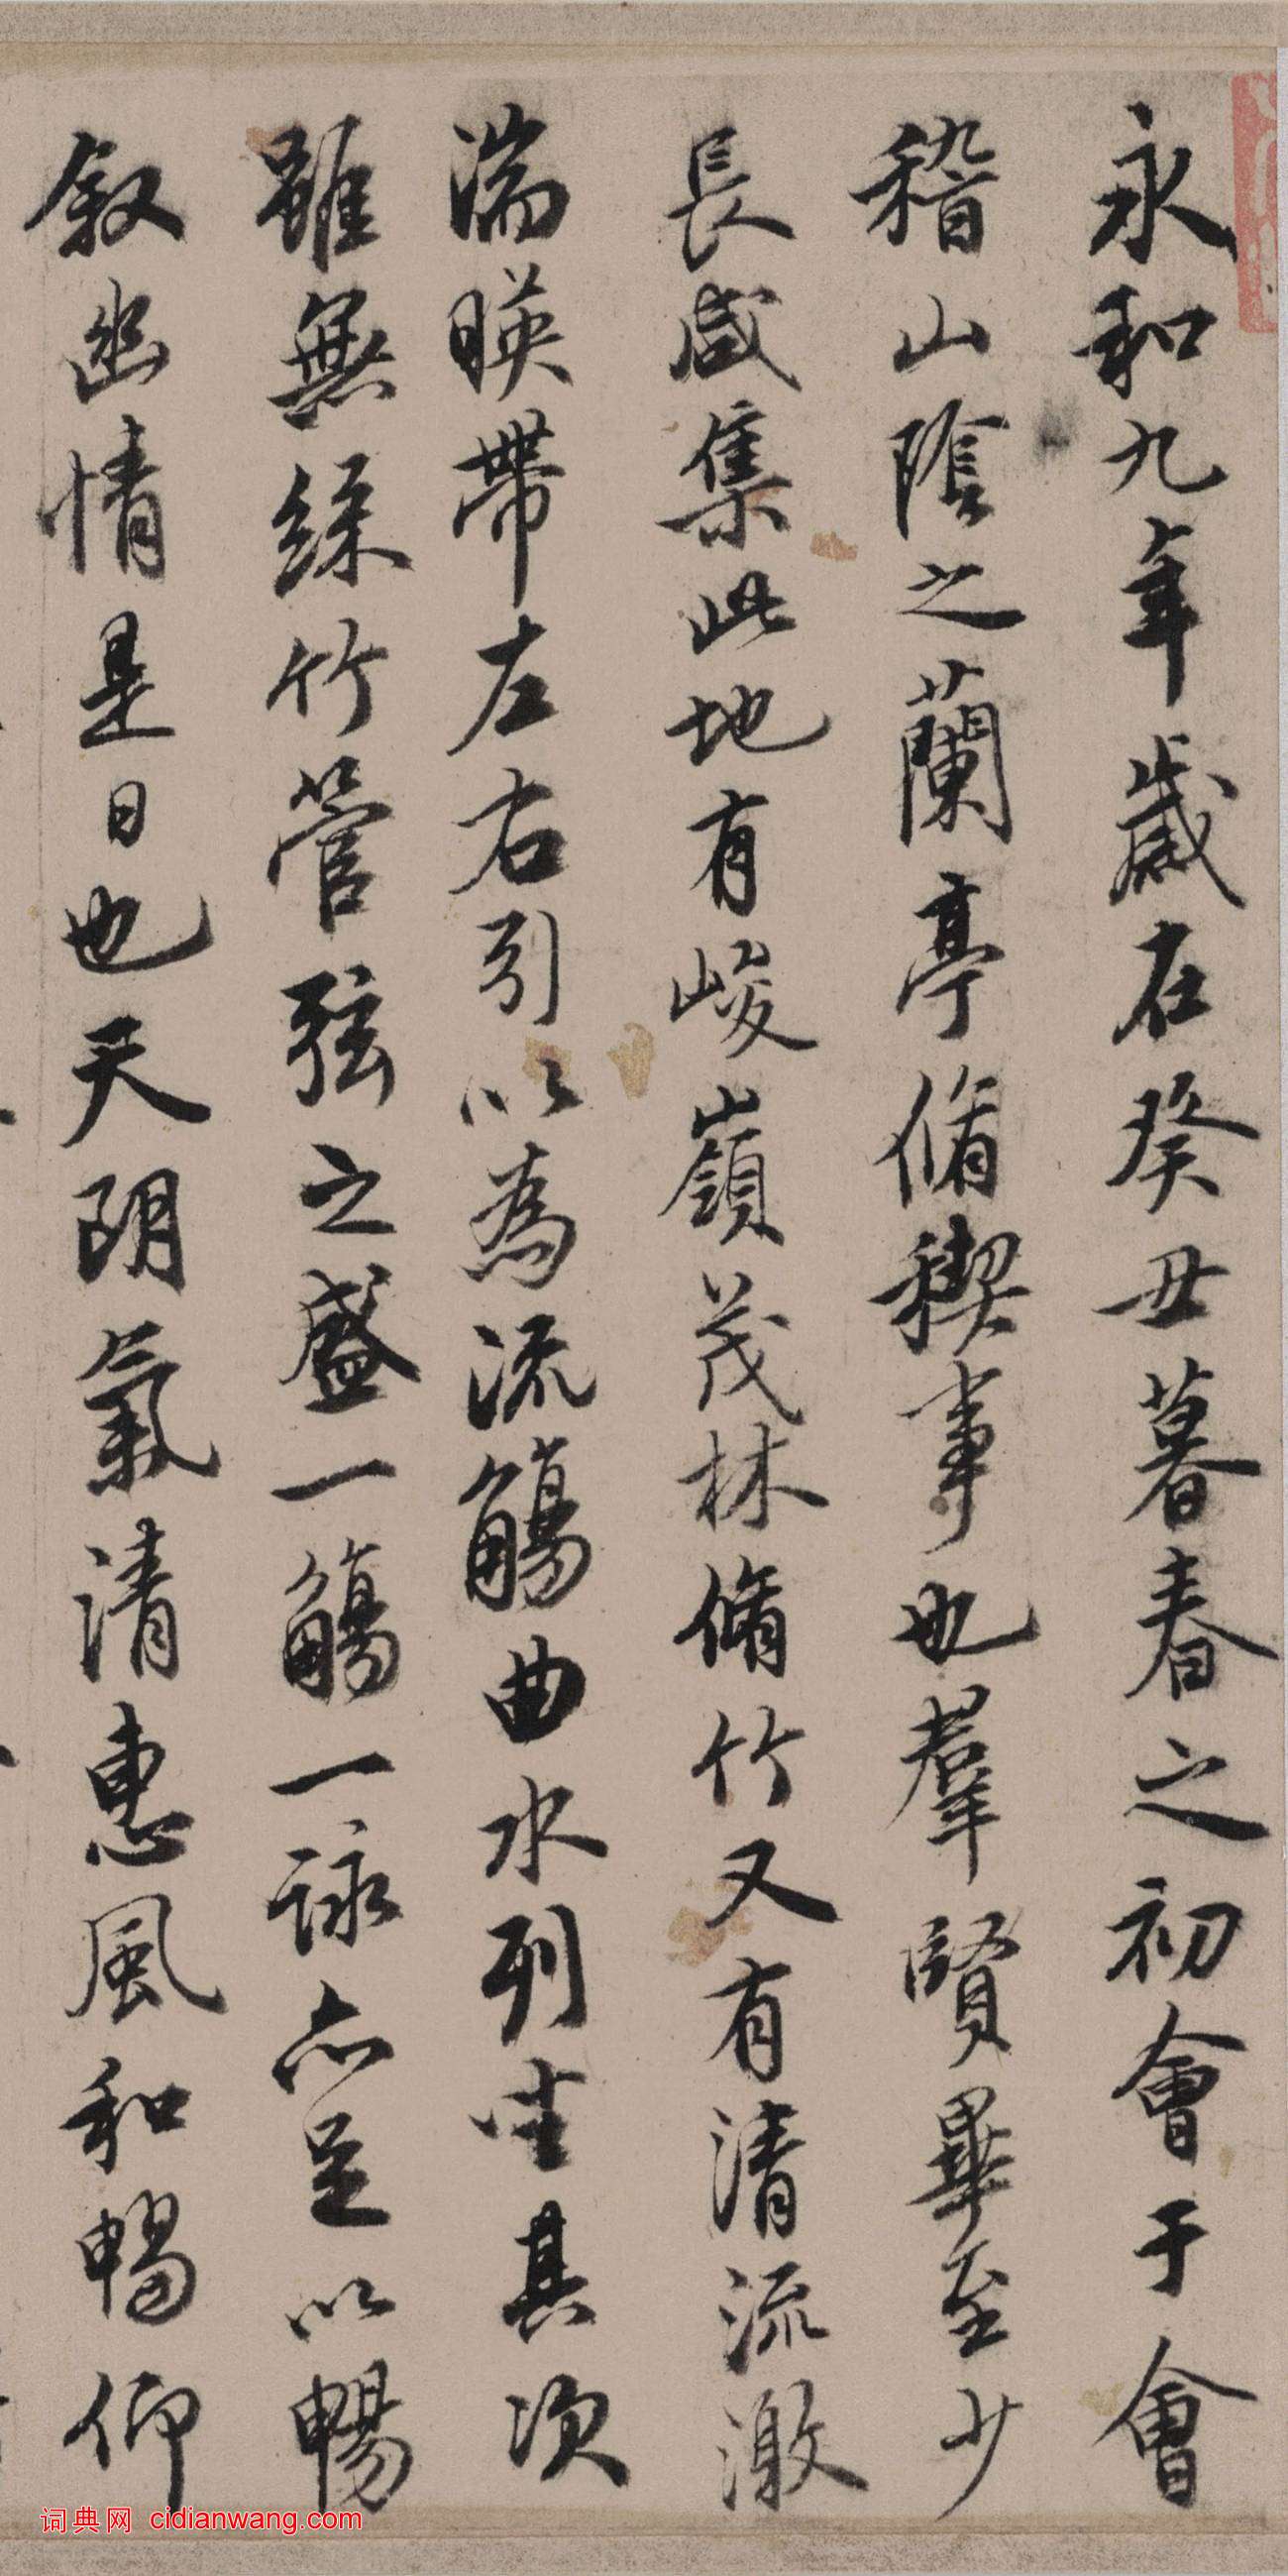 永和九年歲在癸丑暮春之初會于會
稽山陰之蘭亭脩稧事也羣賢畢至少
長咸集此地有峻嶺茂林脩竹又有清流激
湍暎帶左右引以為流觴曲水列坐其次
雖無絲竹管弦之盛一觴一詠亦足以暢
叙幽情是日也天阴氣清惠風和暢仰
词典网 cidianwang.com